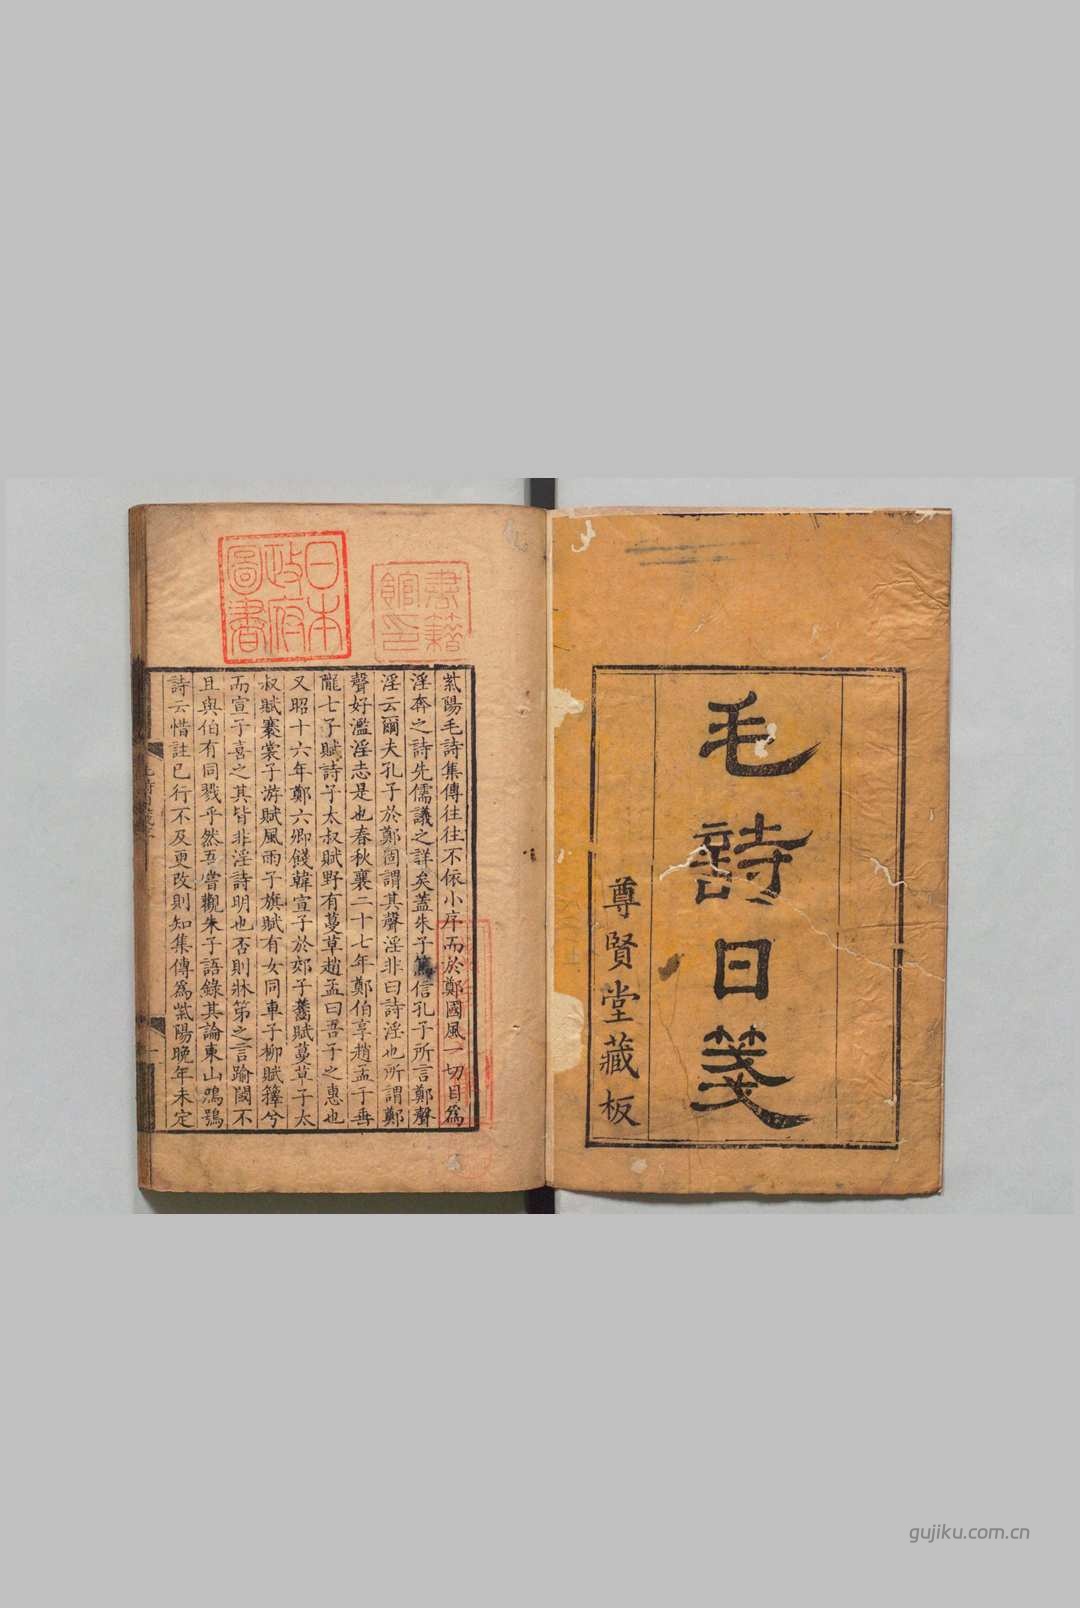 毛詩日箋
尊賢堂藏板
日本
政府
圖書
書籍
館印
紫陽毛詩集傳往往不依小序而於鄭國風一切目爲
淫奔之詩先儒議之詳矣蓋朱子篤信孔子所言鄭聲
淫云爾夫孔子於鄭固謂其聲淫非曰詩淫也所謂鄭
聲好濫淫志是也春秋襄二十七年鄭伯享趙孟于垂
隴七子賦詩子太叔賦野有蔓草趙孟曰吾子之惠也
又昭十六年鄭六卿餞韓宣子於郊子齹賦蔓草子太
叔賦褰裳子游賦風雨子旗賦有女同車子柳賦籜兮
而宣子喜之其皆非淫詩明也否則牀笫之言踰閾不
且與伯有同戮乎然吾嘗觀朱子語錄其論東山鴟鴞
詩云惜註已行不及更改則知集傳爲紫陽晚年未定
gujiku.com.cn